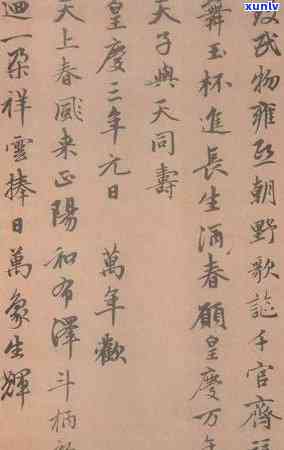 xunlv
民物雍熙朝野歌謠千官齊
舞玉杯進長生酒春願皇慶万年
天子與天同壽
皇慶三年元日 萬年歡
天上春風来正陽和布澤斗柄
迪一朶祥雲捧日萬象生輝